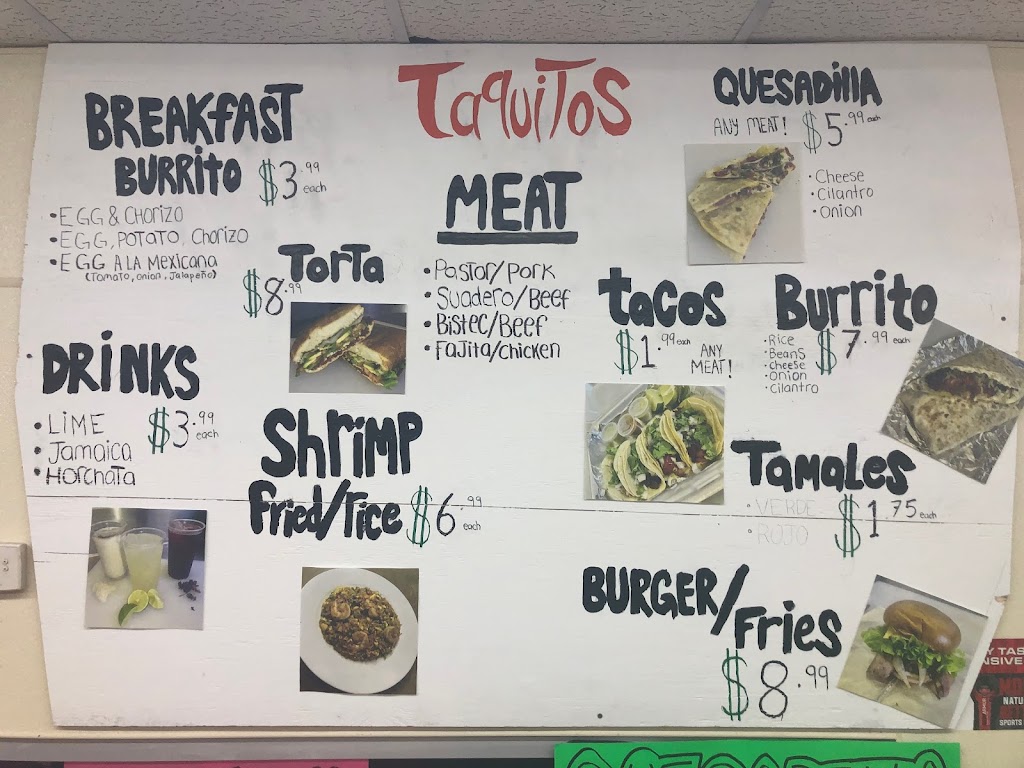 TaquiTos
BREAKfAST
BURRITO $3.99 each
• EGG & CHORIZO
• EGG, POTATO, Chorizo
• EGG A LA Mexicana
(Tomato, onion, Jalapeño)
TorTa
$8.99
DRiNKS
• LiME
• Jamaica
• HorcHata
$3.99 each
ShriMP
fried/rice $6.99 each
MEAT
• Pastor/Pork
• Suadero/Beef
• Bistec/Beef
• FaJita/chicken
QUESADillA
ANY MEAT! $5.99 each
• Cheese
• Cilantro
• Onion
tacos
$1.99 each ANY
MEAT!
Burrito
• Rice
• Beans
• cheese
• Onion
• Cilantro
$7.99 each
TaMaLes
• VERDE
• ROJO
$1.75 each
BURGER/
Fries
$8.99
Y TAS
NSIVE
NATU
SPORTS